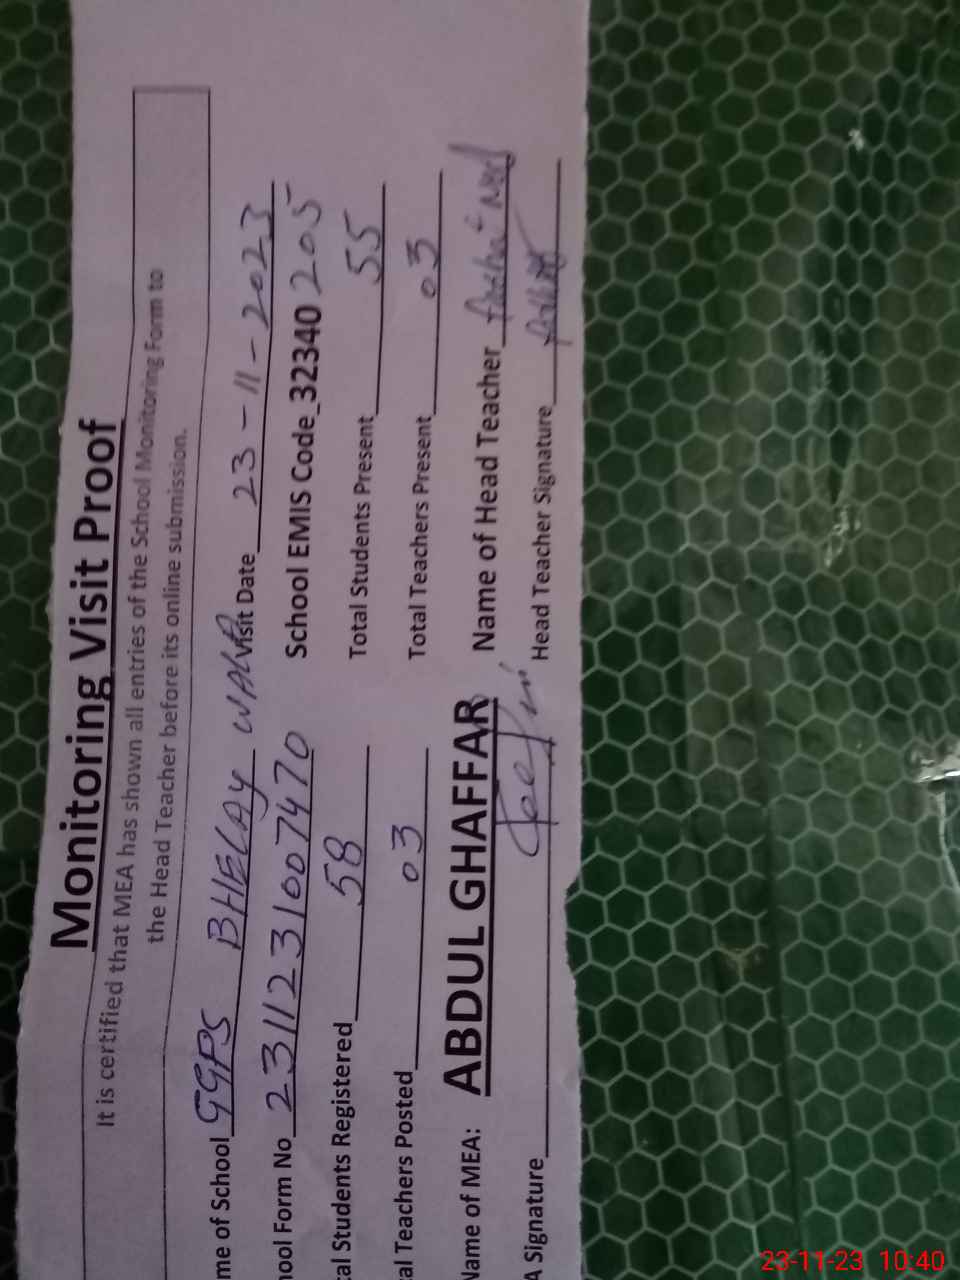 Monitoring Visit Proof
It is certified that MEA has shown all entries of the School Monitoring Form to
the Head Teacher before its online submission.
me of School GGPS BHELAY WALA Visit Date 23-11-2023
hool Form No 2311231007470 School EMIS Code 32340205
tal Students Registered 58 Total Students Present 55
al Teachers Posted 03 Total Teachers Present 03
Name of MEA: ABDUL GHAFFAR Name of Head Teacher
A Signature Head Teacher Signature
23-11-23 10:40